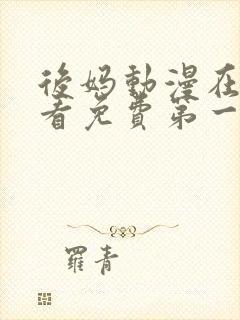 後妈動漫在
看免費第一
羅青